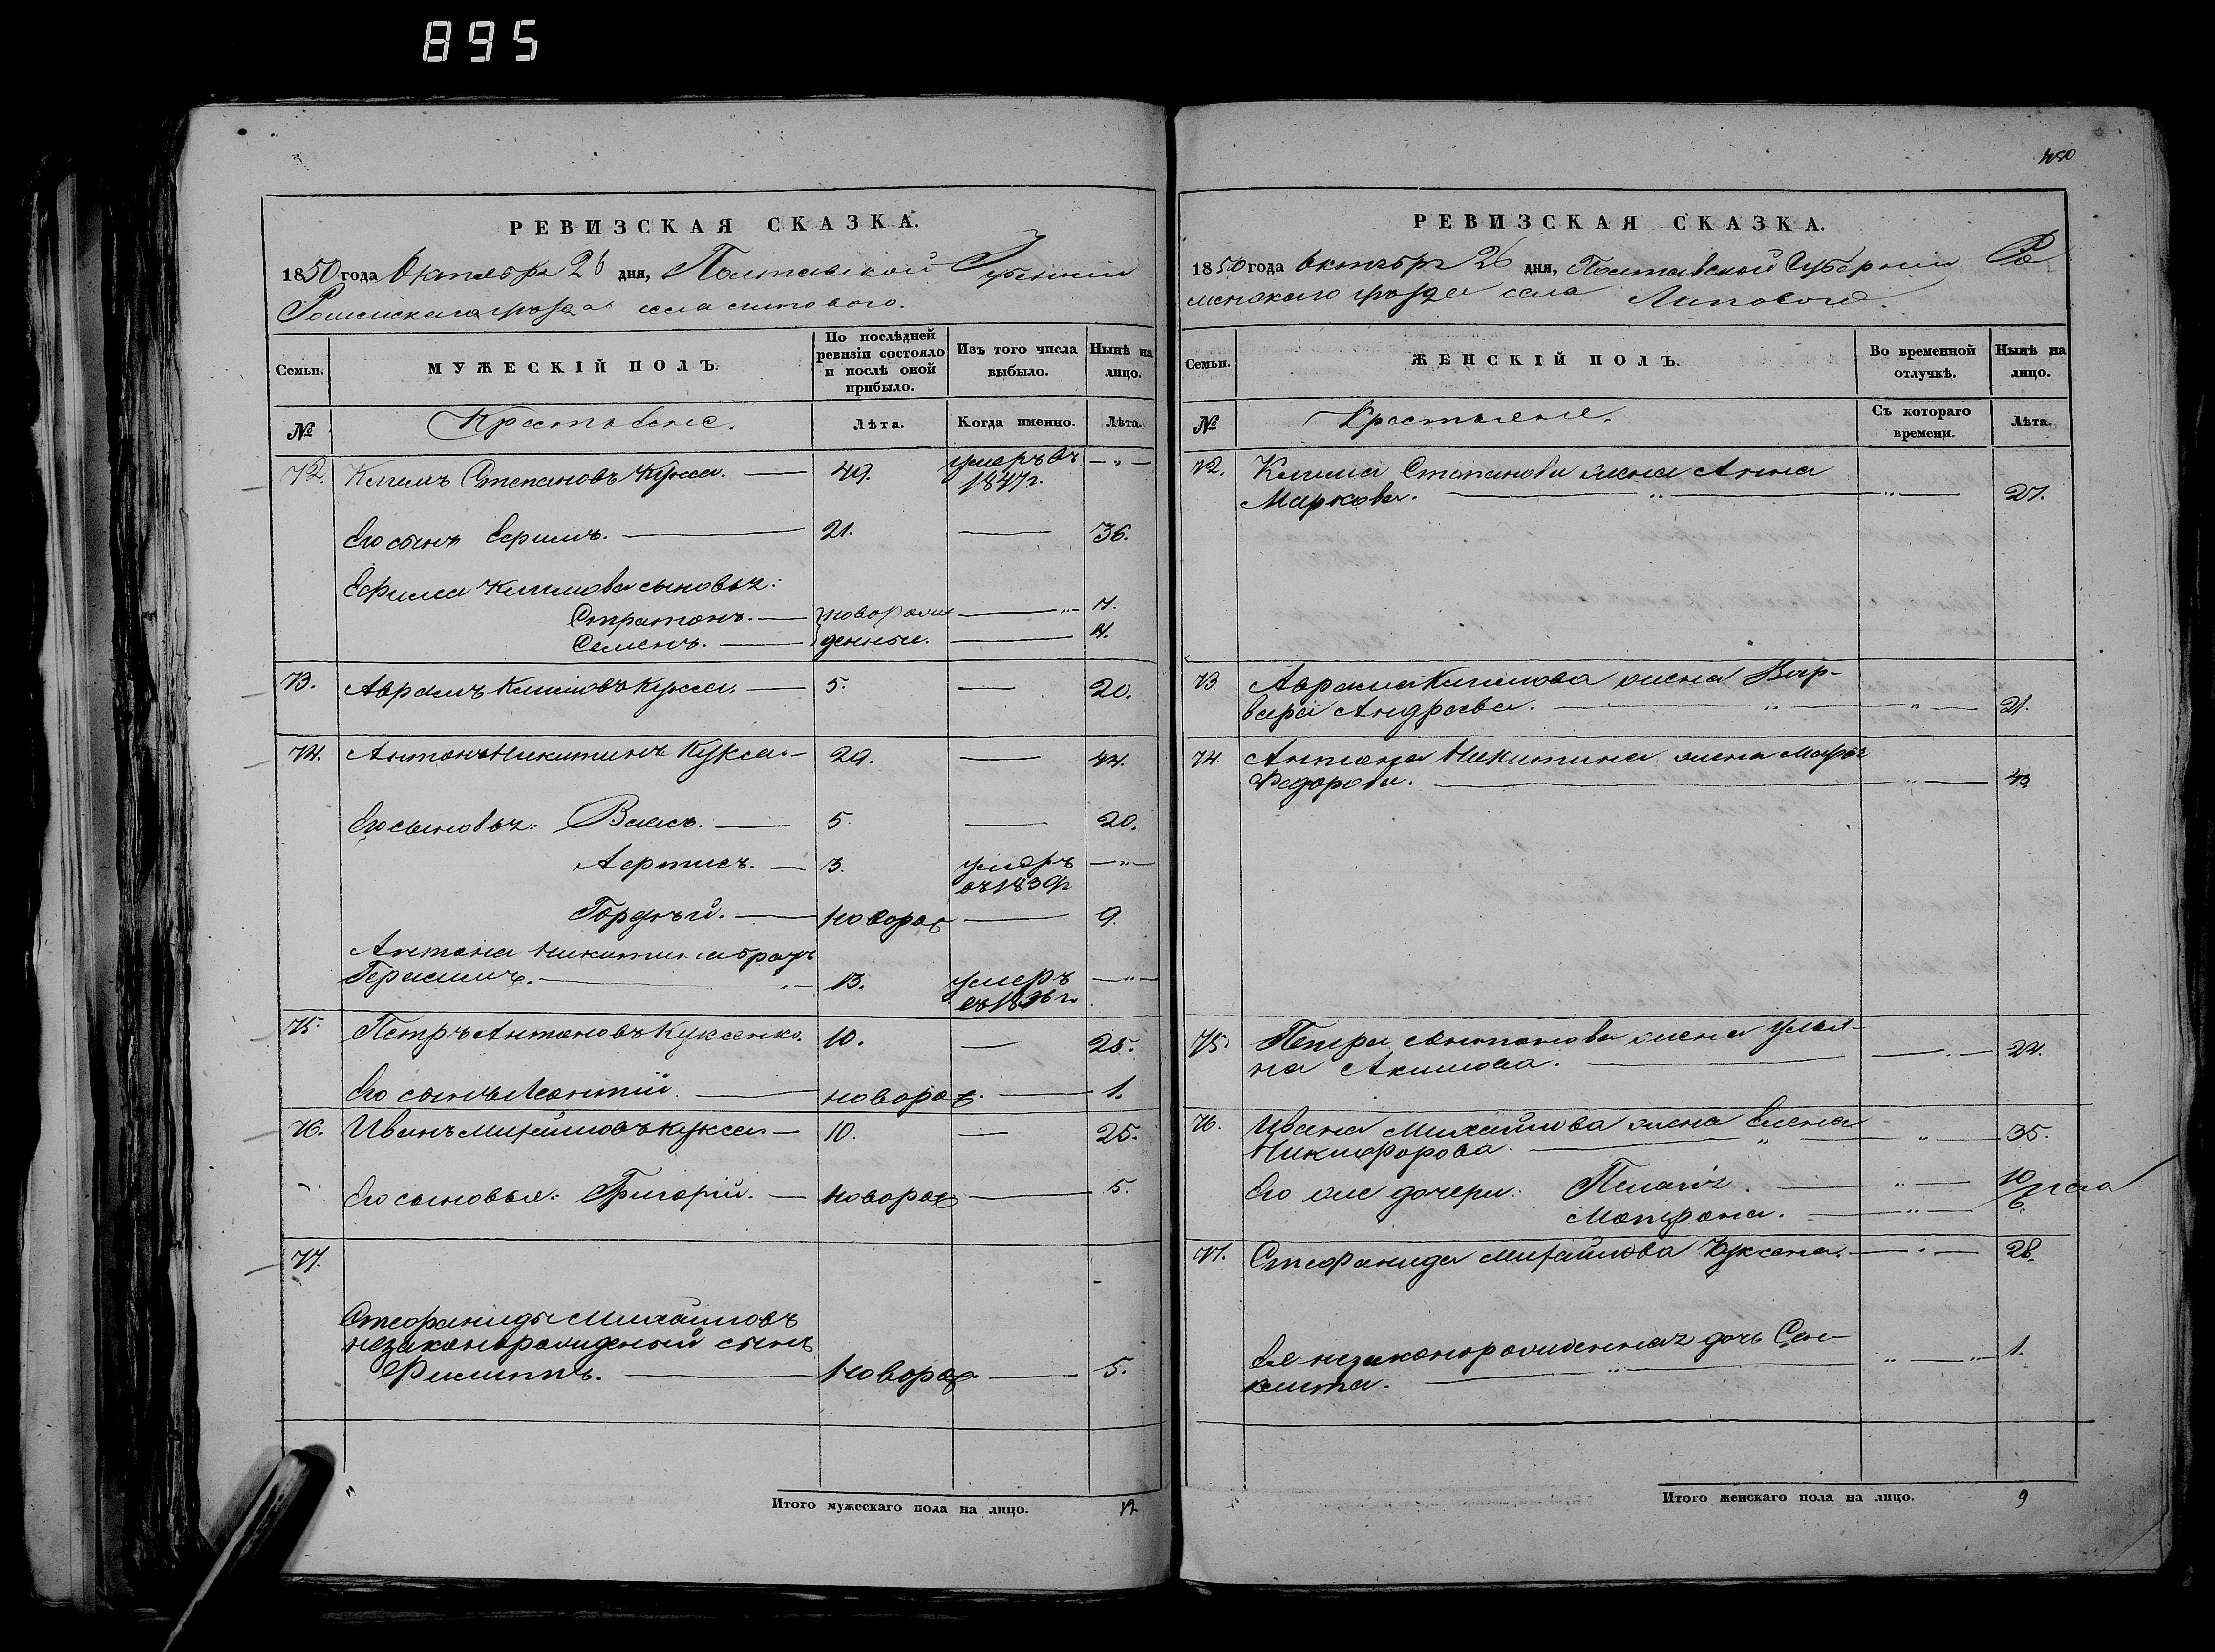 895
РЕВИЗСКАЯ СКАЗКА.
1850 года Октября 26 дня, Полтавской Губерніи
Роменскаго уезда села Липового.
Семьи.
МУЖЕСКІЙ ПОЛЪ.
По послѣдней ревизіи состояло и послѣ оной прибыло.
Изъ того числа выбыло.
Нынѣ на лицо.
№
Крестьяне.
Лѣта.
Когда именно.
Лѣта.
72. Климъ Степановъ Кукса. — 49. умеръ въ — " —
1847 г.
Его сынъ Ефимъ. — 21. — 36.
Ефима Климова сыновья:
Стратонъ. — новорож — " — 7.
Семенъ. — денные. — 4.
73. Аврамъ Климовъ Кукса. — 5. — 20.
74. Антонъ Никитинъ Кукса. — 29. — 44.
Его сыновья: Власъ. — 5. — 20.
— 3. умеръ — " —
въ 1839 г
Гордѣй. — новорож — 9.
Антона Никитина братъ
Герасимъ. — 13. умеръ — " —
въ 1836 г.
75. Петръ Антоновъ Куксенко. 10. — 25.
Его сынъ Леонтій. — новорож. — 1.
76. Иванъ Михайловъ Кукса. — 10. — 25.
Его сыновья: Григорій. — новорож — 5.
77.
Стефаниды Михайловъ
незаконорожденый сынъ
Филиппъ. — новорож — 5.
Итого мужескаго пола на лицо. 12
450
РЕВИЗСКАЯ СКАЗКА.
1850 года Октября 26 дня, Полтавской Губерніи Ро
менскаго уезда села Липового.
Семьи.
ЖЕНСКІЙ ПОЛЪ.
Во временной отлучкѣ.
Нынѣ на лицо.
№
Крестьяне.
Съ котораго времени.
Лѣта.
72. Клима Степанова жена Анна
Маркова. — " — " — 27.
73. Аврама Климова жена Вар-
вара Андреева. — " — " — 21.
74. Антона Никитина жена Марья
Федорова. — " — 43.
75. Петра Антонова жена Улья-
на Акимова. — " — 24.
76. Ивана Михайлова жена Елена
Никифорова. — " — " — 35.
Его же дочери: Пелагія. — " — 10
Матрона. — " — 6.
77. Стефанида Михайлова Куксена. — " — 28.
Ея незаконорожденная дочь Сен-
клита. — " — " — " 1.
Итого женскаго пола на лицо. 9